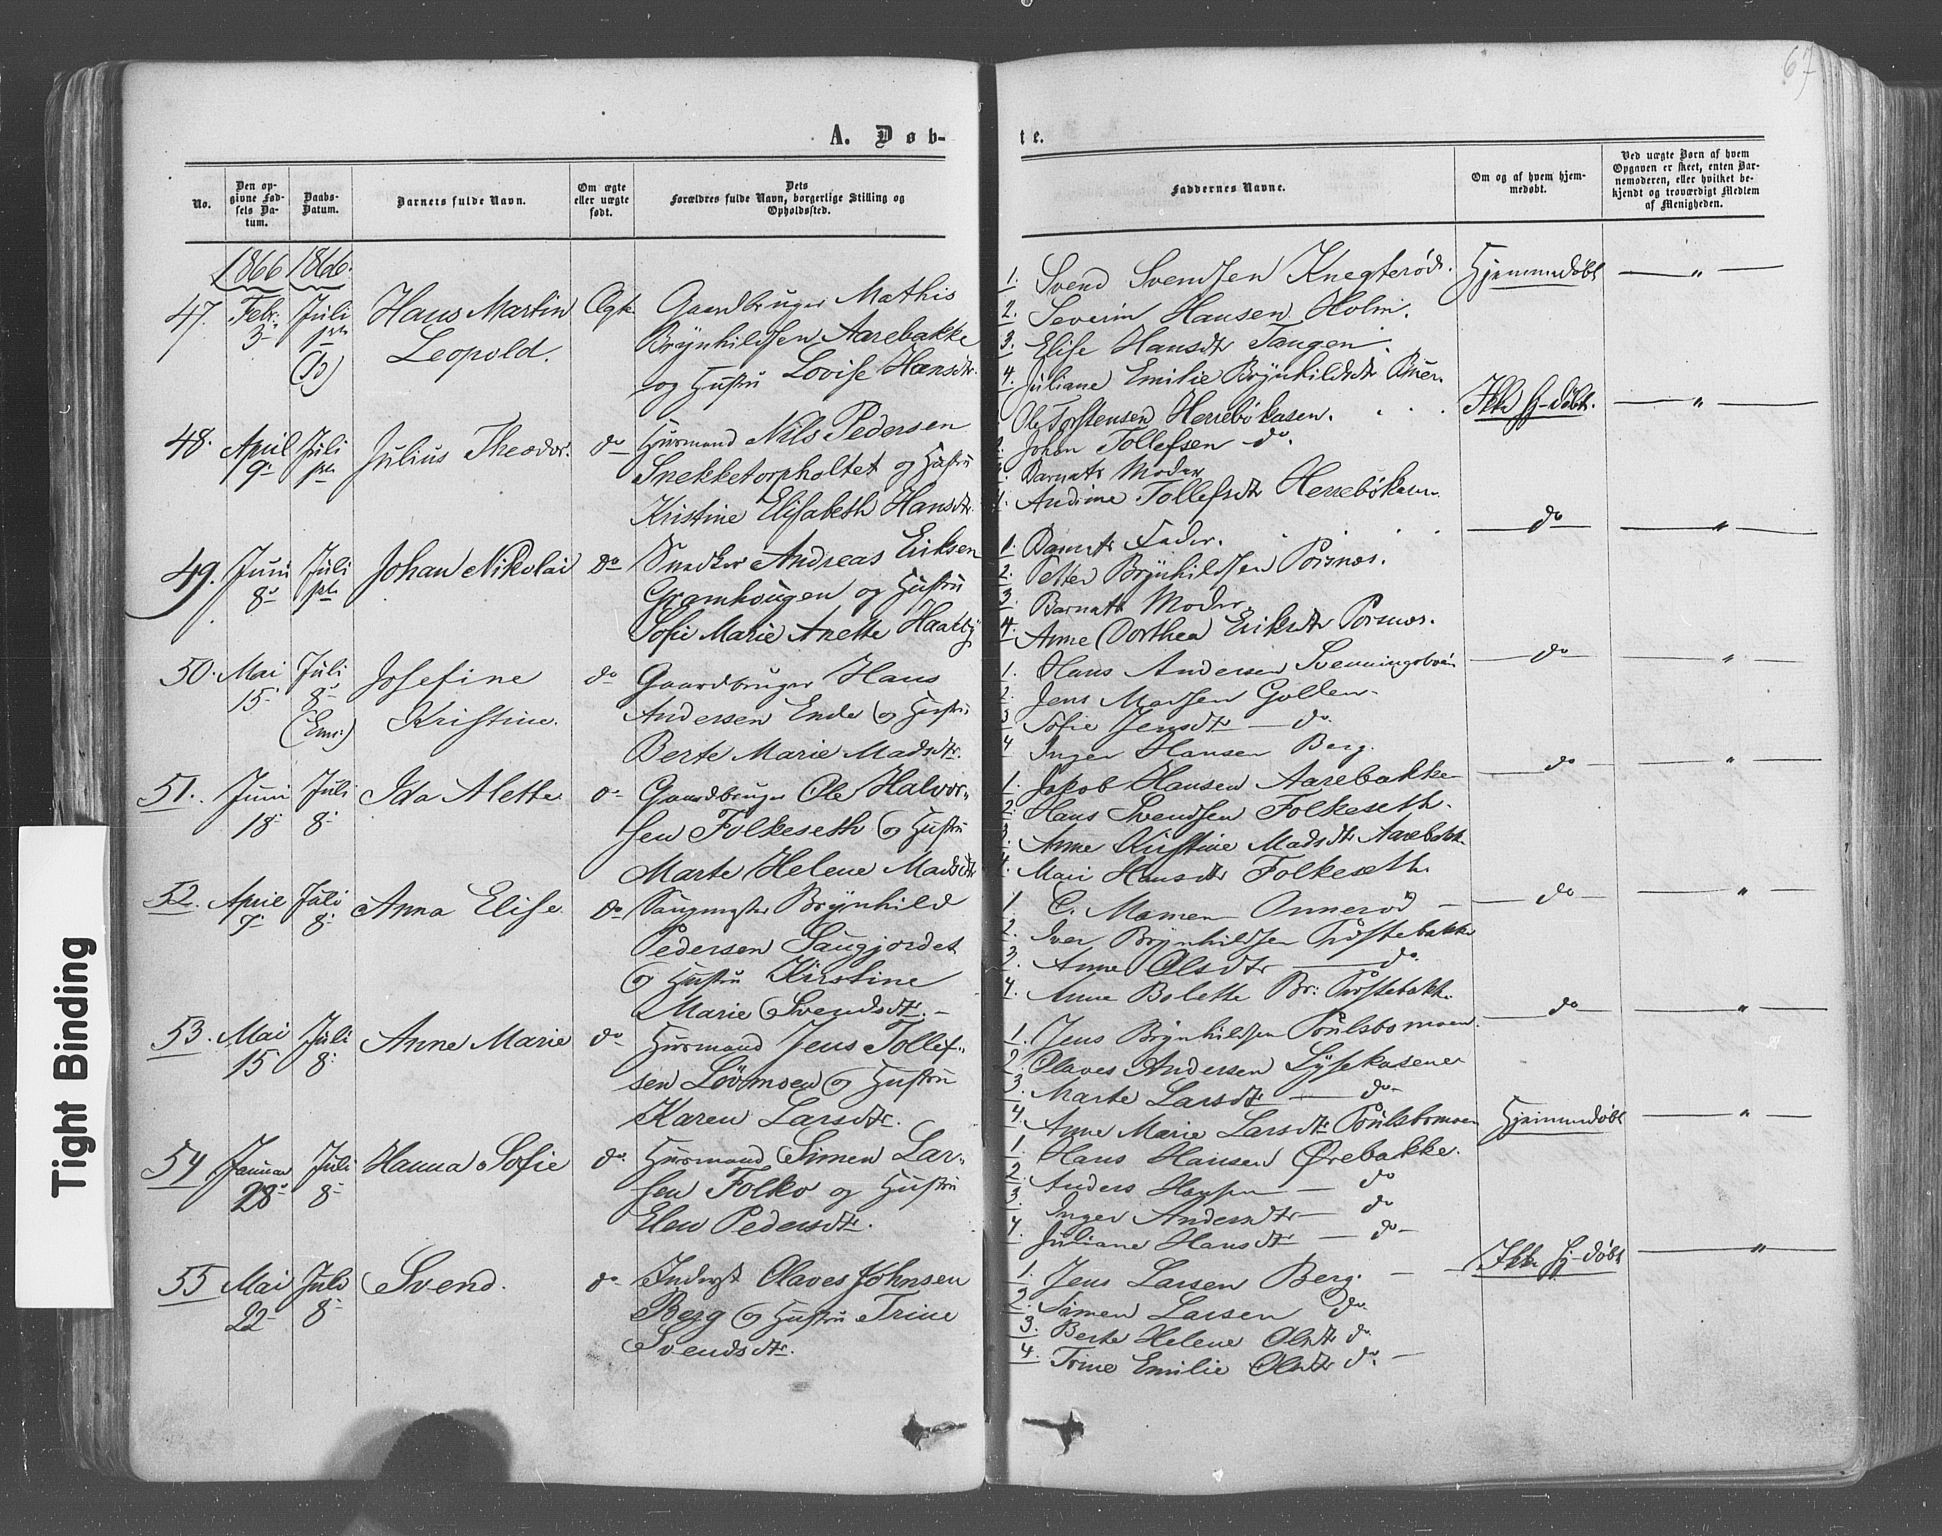 67
A. Døb-
te.
No.
Den op-
givne Fød-
sels Da-
tum.
Daabs-
Datum.
Barnets fulde Navn.
Om ægte
eller uægte
født.
Dets
Forældres fulde Navn, borgerlige Stilling og
Opholdssted.
Faddernes Navne.
Om og af hvem hjem-
medøbt.
Ved uægte Børn af hvem
Opgaven er skeet, enten Bar-
nemoderen, eller hvilket be-
kjendt og troværdigt Medlem
af Menigheden.
1866 1866
47. Febr. 3 Juli 1ste
Hans Martin
Leopold.
Ægte
Gaardbruger Mathis
Brynhildsen Aarebakke
og Hustru Lovise Hansdtr.
1. Svend Svendsen Knegterød.
2. Severin Hansen Holm.
3. Elise Hansdtr Tangen.
4. Juliane Emilie Brynhildsdtr
Hjemmedøbt "
48. April 9 Juli 1ste
Julius Theodor.
do
Husmand Nils Pedersen
Snekketorpholtet og Hustru
Kristine Elisabeth Hansdtr.
Ole Torstensen Herrebøkasen.
Johan Tollefsen do.
Barnets Moder
Andrine Tollefsdtr Herrebøkasen
Ikke Hj-døbt. "
49. Juni 8 Juli 1ste
Johan Nikolai
do
Snedker Andreas Eriksen
Gramhougen og Hustru
Sofie Marie Anette Haaby
1. Barnets Fader.
2. Petter Brynhildsen Porsnæs.
3. Barnets Moder
4. Anne Dorthea Eriksdtr Porsnæs.
do "
50. Mai 15 Juli 8
Josefine
Kristine.
do
Gaardbruger Hans
Andersen Ende og Hustru
Berte Marie Madsdtr.
1. Hans Andersen
2. Jens Madsen Gallen
3 Sofie Jensdtr do
4 Inger Hansen Berg.
do "
51. Juni 18 Juli 8
Ida Alette
do
Gaardbruger Ole Halvor-
sen Folkeseth og Hustru
Marte Helene Madsdtr
1. Jakob Hansen Aarebakke
2. Hans Svendsen Folkeseth.
3. Anne Kirstine Madsdtr Aarebakke
4. Mari Hansdtr Folkeseth.
do "
52. April 9 Juli 8
Anna Elise
do
Saugmester Brynhild
Pedersen Saugjordet
og Hustru Kirstine
Marie Svendsdtr.
1 C. Mamen Onnerød
2. Iver Brynhildsen Torstebakke
3. Anne Olsdtr do
4. Anne Bolette Br: Torstebakke
do "
53. Mai 15 Juli 8
Anne Marie
do
Husmand Jens Tollef-
sen Løvmoen og Hustru
Karen Larsdtr.
1. Jens Brynhildsen Poulsbomoen.
2. Olaves Andersen Lysekasene
3. Marte Larsdtr do
4. Anne Marie Larsdtr Poulsbomoen
do "
54 Januar 28 Juli 8
Hanna Sofie
do
Husmand Simen Lar-
sen Folko og Hustru
Elen Pedersdtr.
1. Hans Hansen Ørebakke.
2. Anders Hansen do
3. Inger Andersdtr do
4. Juliane Hansdtr do
Hjemmedøbt "
55 Mai 22 Juli 8
Svend.
do
Inderst Olaves Johnsen
Berg og Hustru Trine
Svendsdtr.
1. Jens Larsen Berg.
2. Simen Larsen do
3. Berte Helene Olsdtr do
4. Trine Emilie Olsdtr do.
Ikke Hj-døbt "
Tight Binding